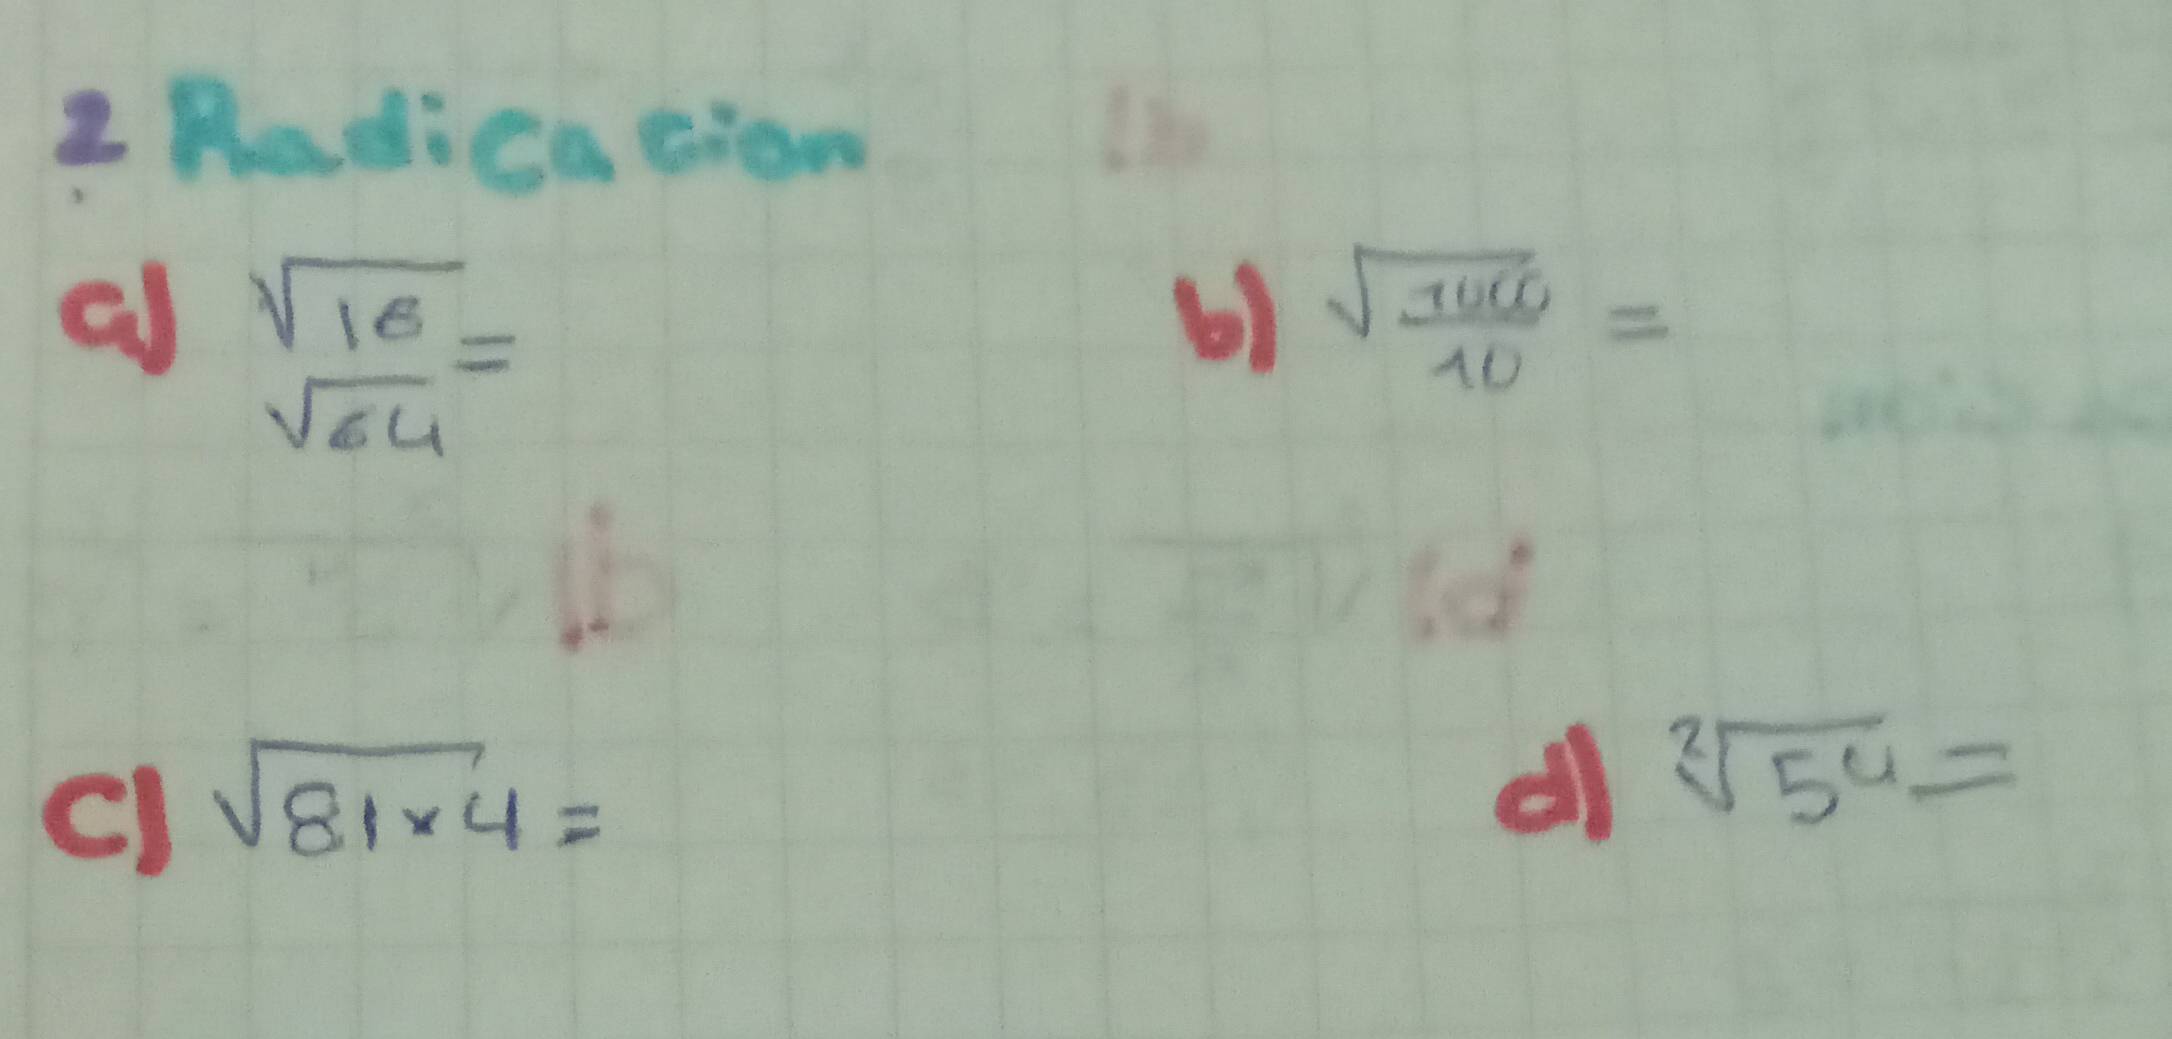 2 Radicacion
a) √16 / √64 =
b) √(1000/10) =
c) √81×4 =
d) ²√5⁴ =